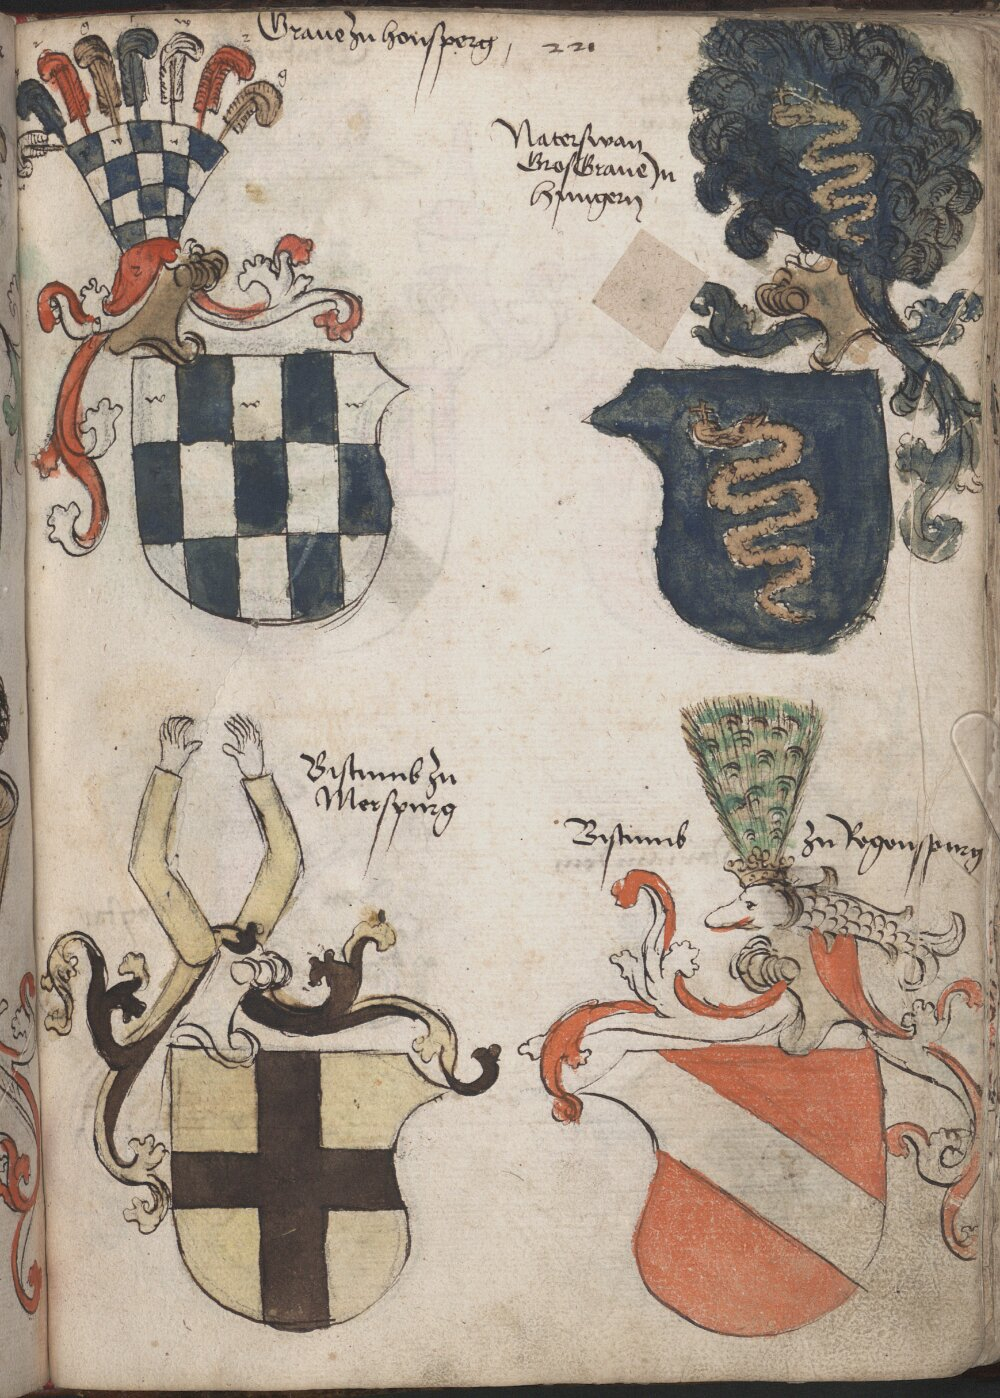 Graue zu honsperg
221
Naterswan
Gros Graue Jn
Hungern
Bistumb zu
Merspurg
Bistumb zu Regenspurg
w w w